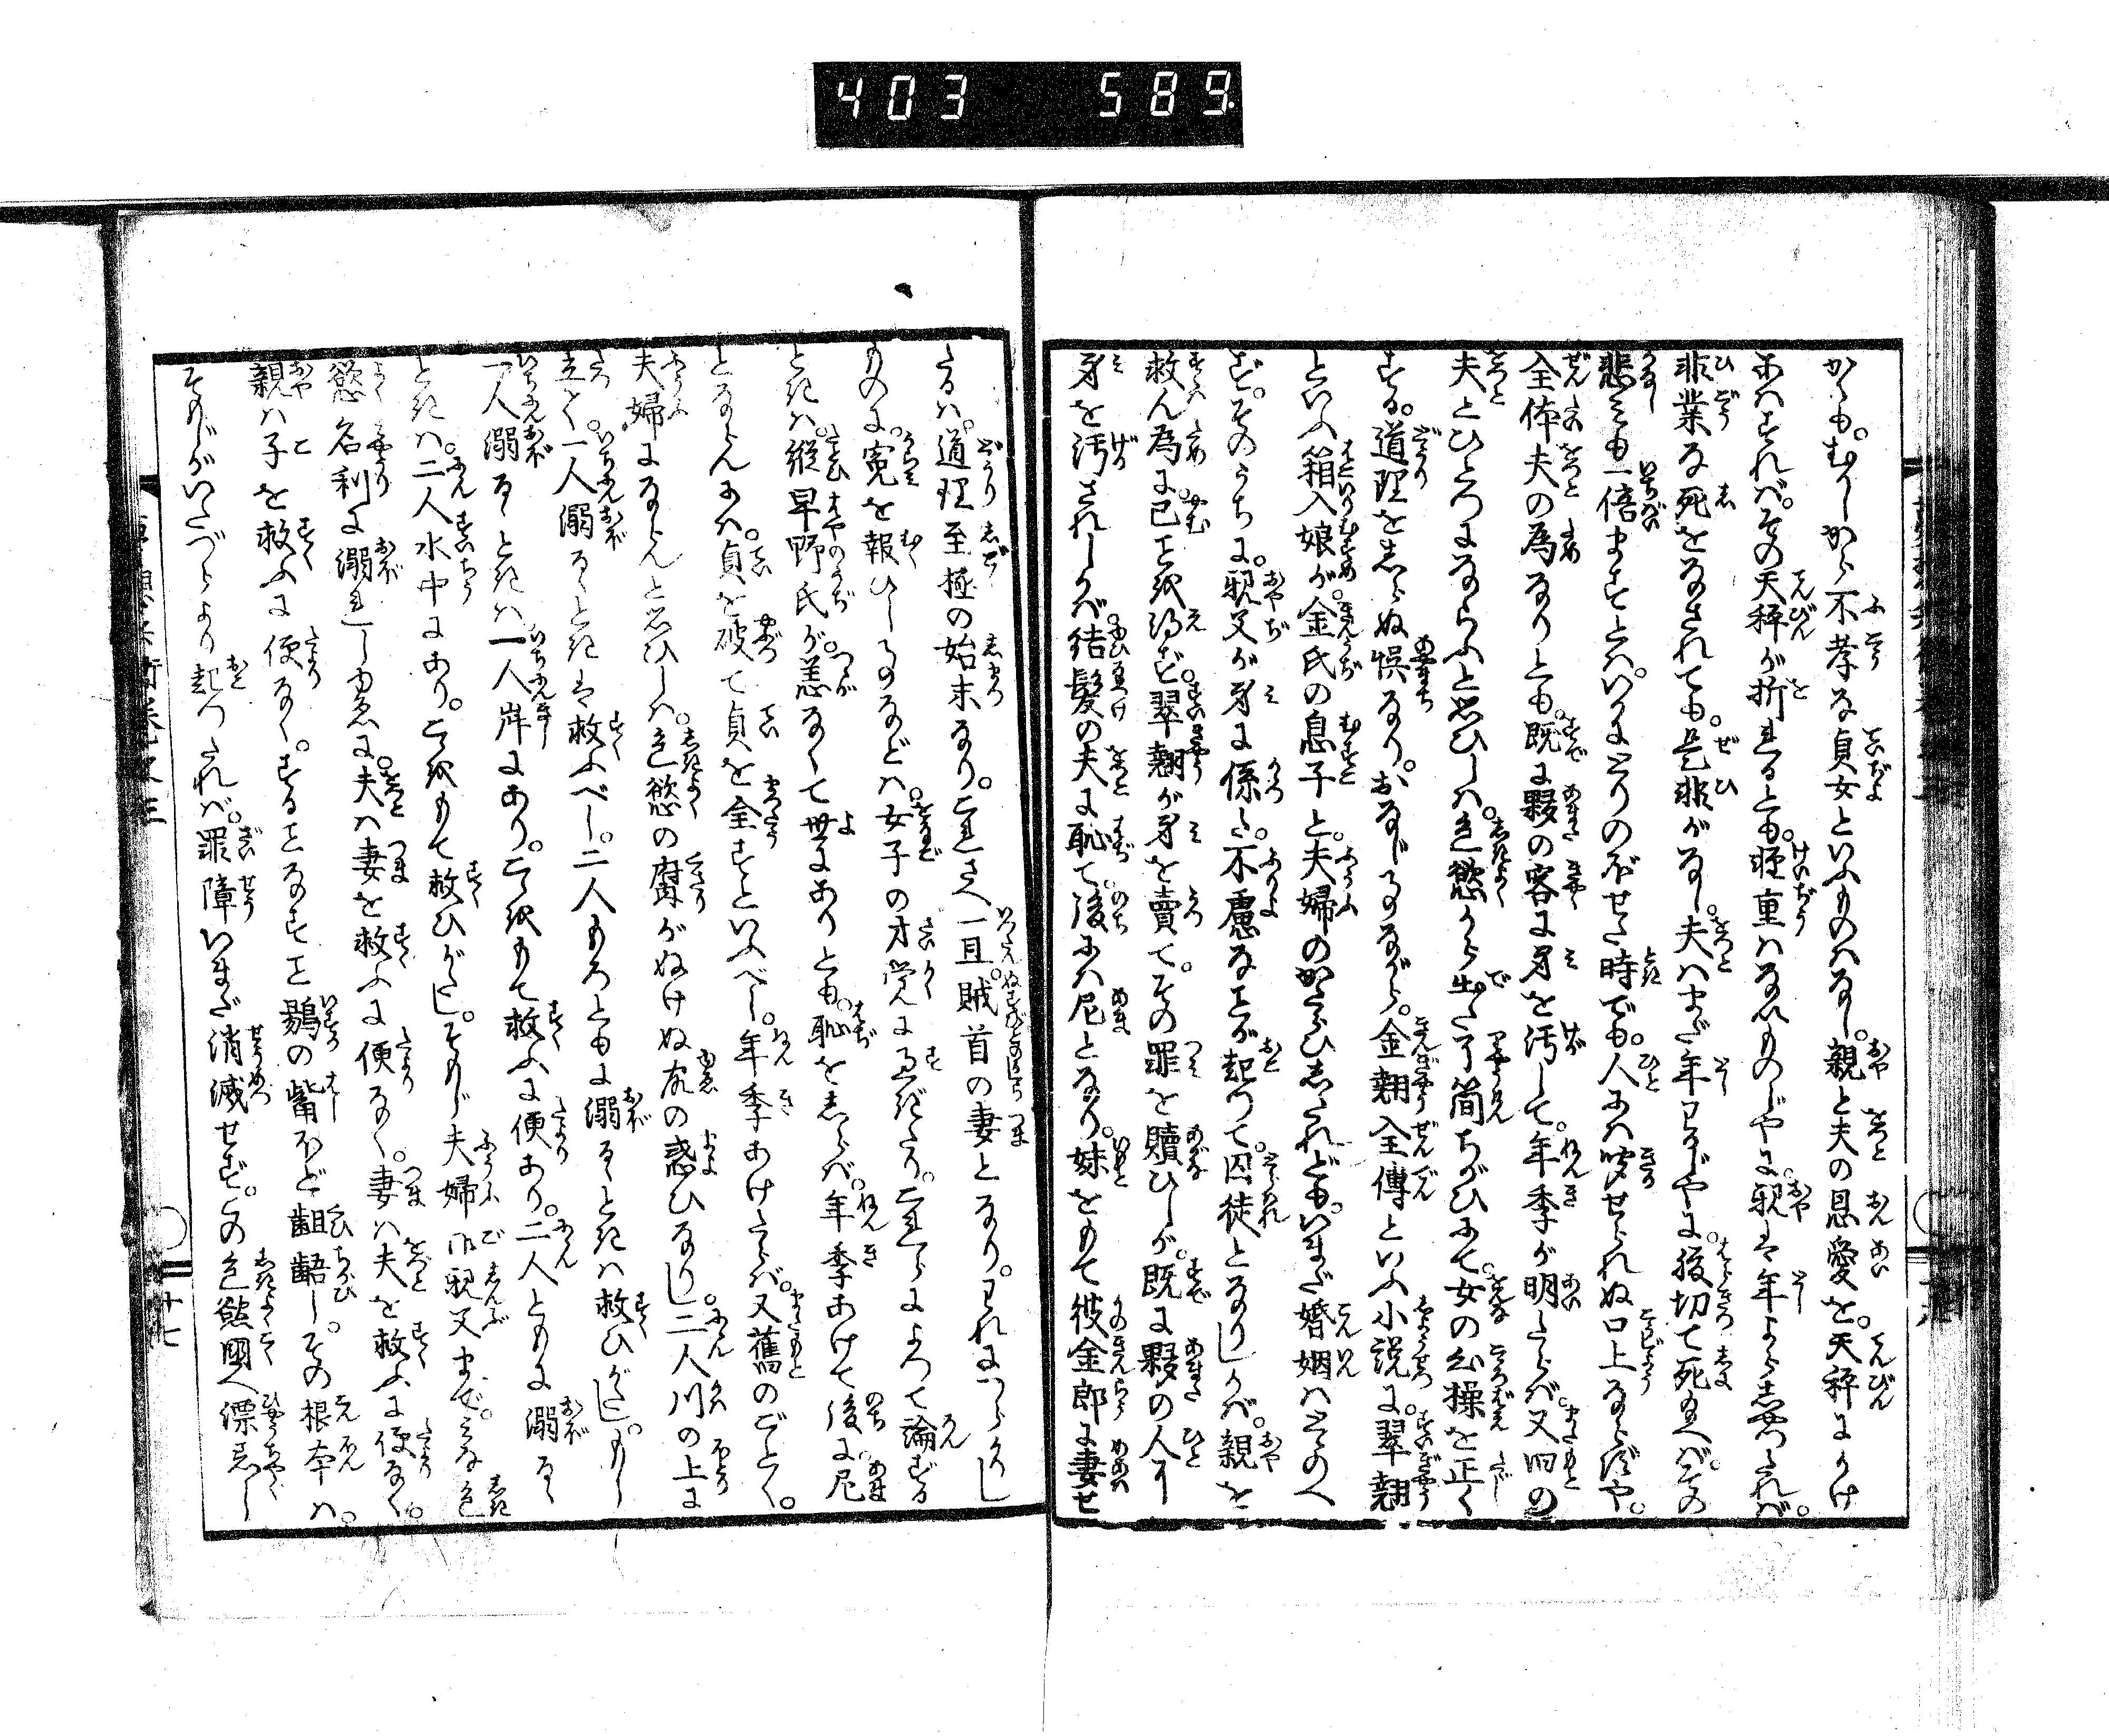 403 589
からも。むかしから不孝な貞女といふものはなし。親と夫の恩愛を。天秤にかけ
あはすれば。その天秤が折るゝとも。軽重はなひものじやに。親は年よらしやつたれば。
非業な死をなされても。是非がなし。夫はまだ年わかじやに。腹切て死ねば。その
悲しみも一倍ますとは。いかにとりのぼせた時でも。人には聞せられぬ口上ならずや。
全体夫の為なりとも。既に夥の客に身を汚して。年季が明たらば又旧の
夫とひとつにならふと思ひしは。色慾から出た了簡ちがひにて。女の心操を正くする。
道理をしらぬ悞なり。おなじ事ながら。金翹全傳といふ小説に。翠翹
といふ箱入娘が。金氏の息子と。夫婦のかたらひしたれども。いまだ婚姻はとゝのへ
ず。そのうちに。親父が身に係た。不慮なことが起つて。囚徒となりしかば。親を
救ん為に。已ことを得ず翠翹が身を賣て。その罪を贖ひしが。既に夥の人に
身を汚されしかば結髪の夫に恥て。後には尼となり。妹をもて彼金郎に妻せ
たるは。道理至極の始末なり。これさへ一旦。賊首の妻となり。われにつらかりし
ものに。寃を報ひし事などは。女子の才覚に過ぎたり。これらによつて論ずる
ときは。縦早野氏が。恙なくて世にありとも。恥をしらば。年季あけて後に尼
とならんには。貞を破て貞を全すといふべし。年季あけたらば。又舊のごとく。
夫婦にならんと思ひしは。色慾の腐がぬけぬ故の惑ひなりし。二人川の上に
立て。一人溺るゝときは救ふべし。二人もろともに溺るゝときは救ひがたし。もし
一人溺るゝときは一人岸にあり。これをもて救ふに便あり。二人ともに溺るゝ
ときは。二人水中にあり。これをもて救ひがたし。そもじ夫婦御親父まで。みな色
慾名利に溺れしゆゑに。夫は妻を救ふに便なく。妻は夫を救ふに便なく。
親は子を救ふに便なく。することなすこと鶍の觜ほど齟齬し。その根本は。
そもじがいたづらより起つたれば。罪障いまだ消滅せず。この色慾国へ漂着し
十七